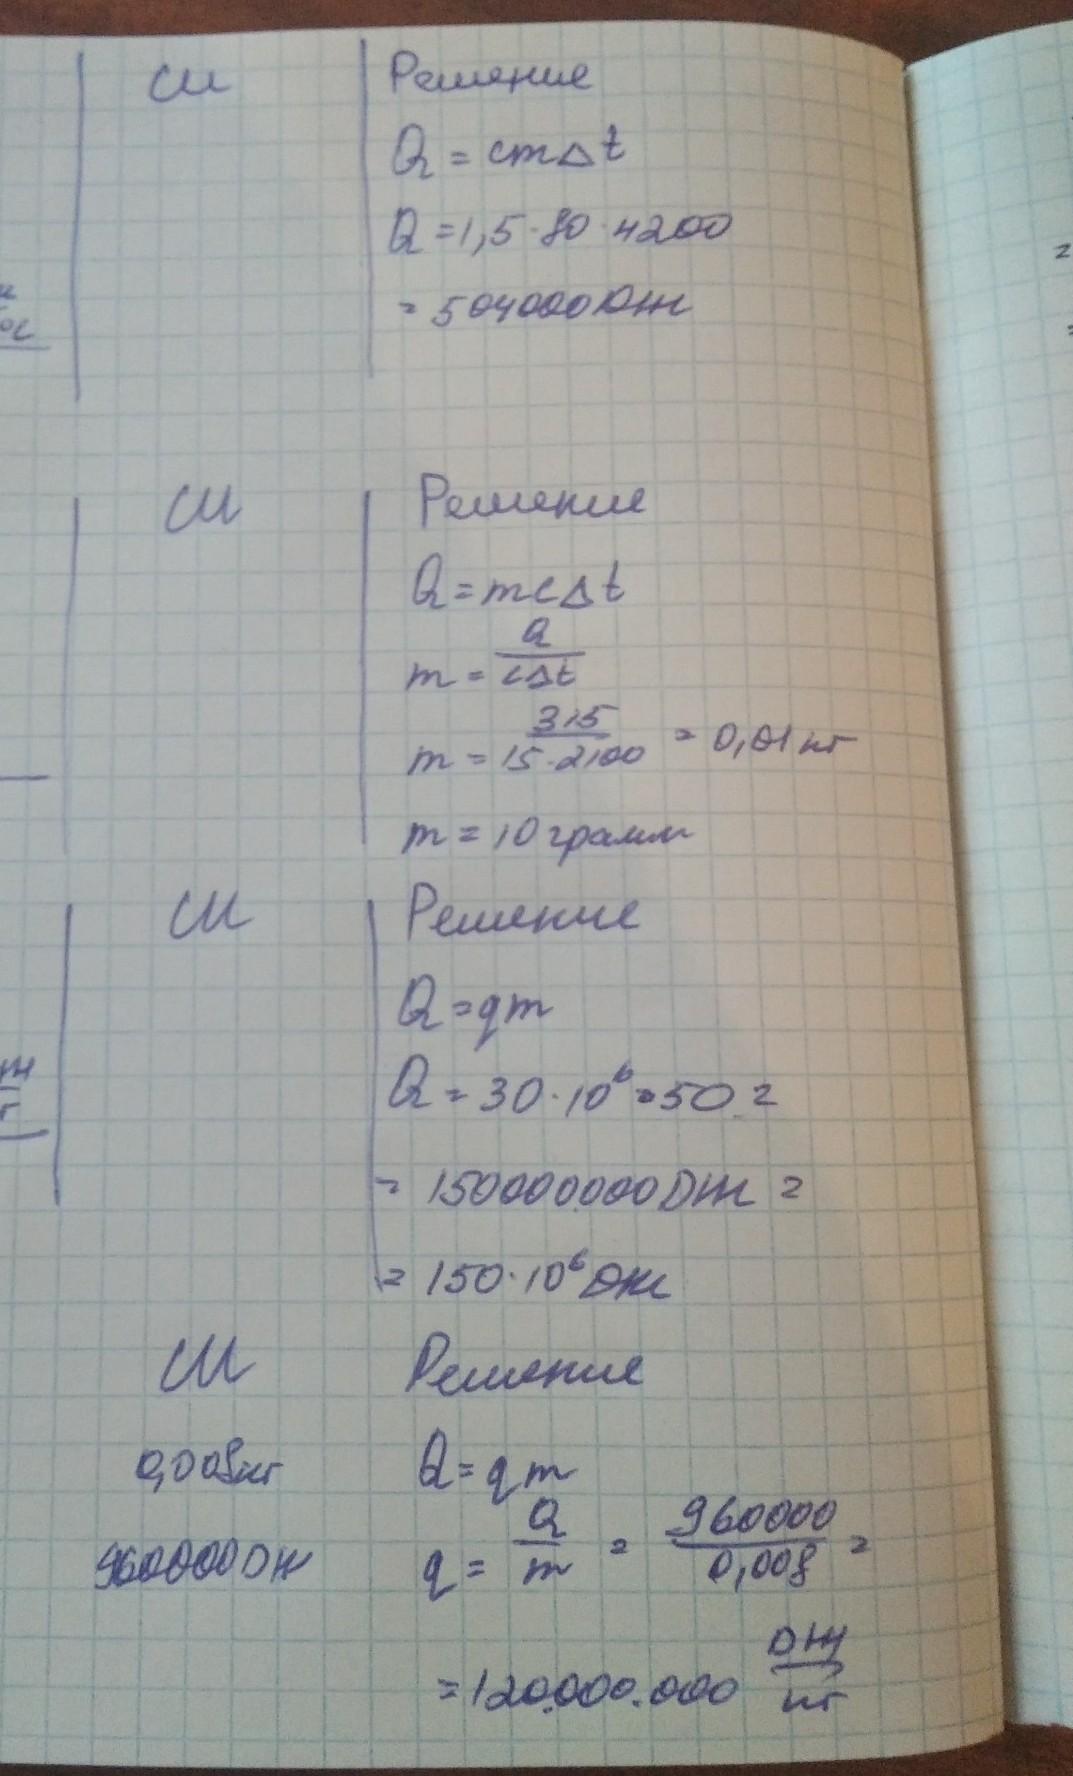 СИ
Решение
Q = cmΔt
Q = 1,5 · 80 · 4200
= 504000 Дж
СИ
Решение
Q = mcΔt
m = Q / cΔt
m = 315 / 15 · 2100 = 0,01 кг
m = 10 грамм
СИ
Решение
Q = qm
Q = 30 · 10⁶ = 50 =
= 150000000 Дж =
= 150 · 10⁶ Дж
СИ
Решение
0,008 кг
Q = qm
960000 Дж
q = Q / m = 960000 / 0,008 =
= 120.000.000 Дж / кг